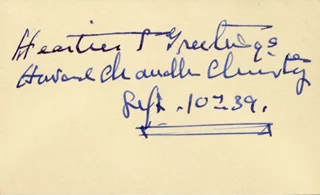 Heartiest Greetings
Howard Chandler Christy
Sept. 10th 39.